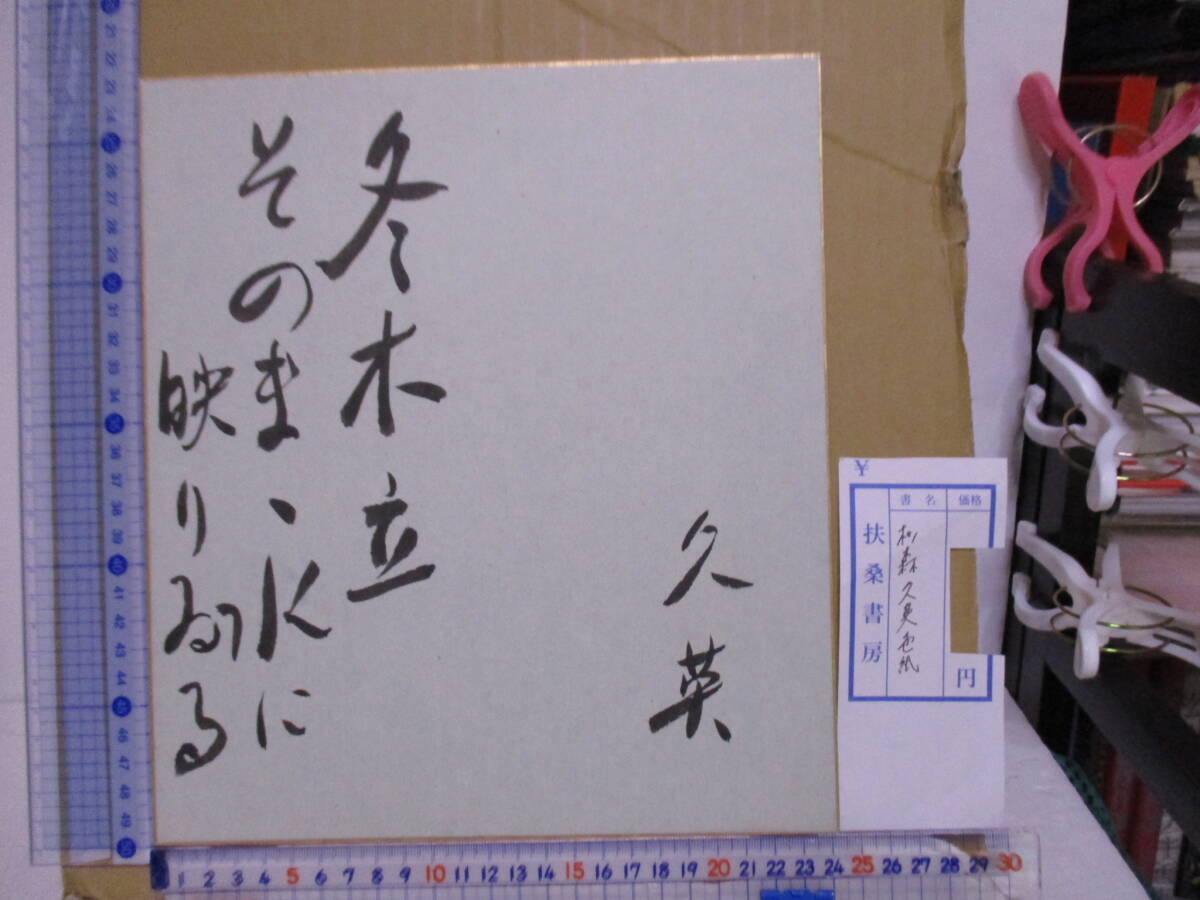 冬木立
そのまゝ水に
映りゐる
久英
¥
価格
円
書名
杉森久英色紙
扶桑書房
21 22 23 24 25 26 27 28 29 30 31 32 33 34 35 36 37 38 39 40 41 42 43 44 45 46 47 48 49 50
1 2 3 4 5 6 7 8 9 10 11 12 13 14 15 16 17 18 19 20 21 22 23 24 25 26 27 28 29 30